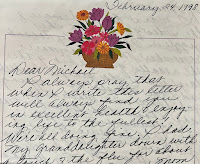 February 24, 1998
Dear Michael,
I always pray that
when I write this letter
will always find you
in excellent health & enjoy-
ing life to the fullest.
Michael doing fine, I had
my granddaughter down with
the flu for about